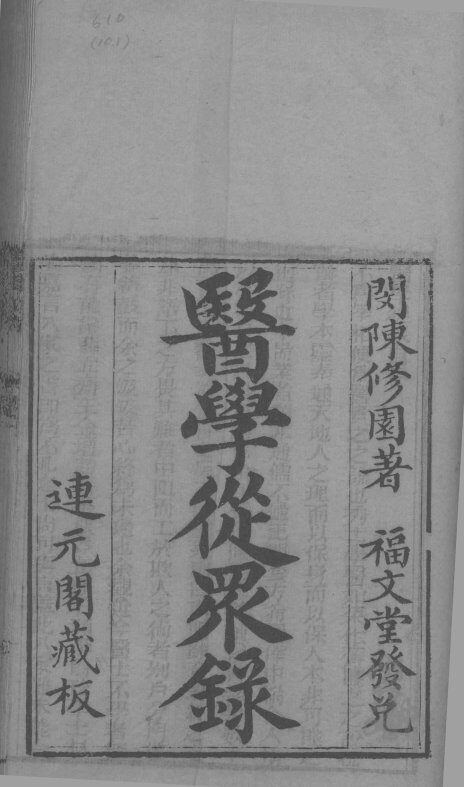 610
(10.1)
閩陳修園著 福文堂發兌
醫學從眾錄
連元閣藏板